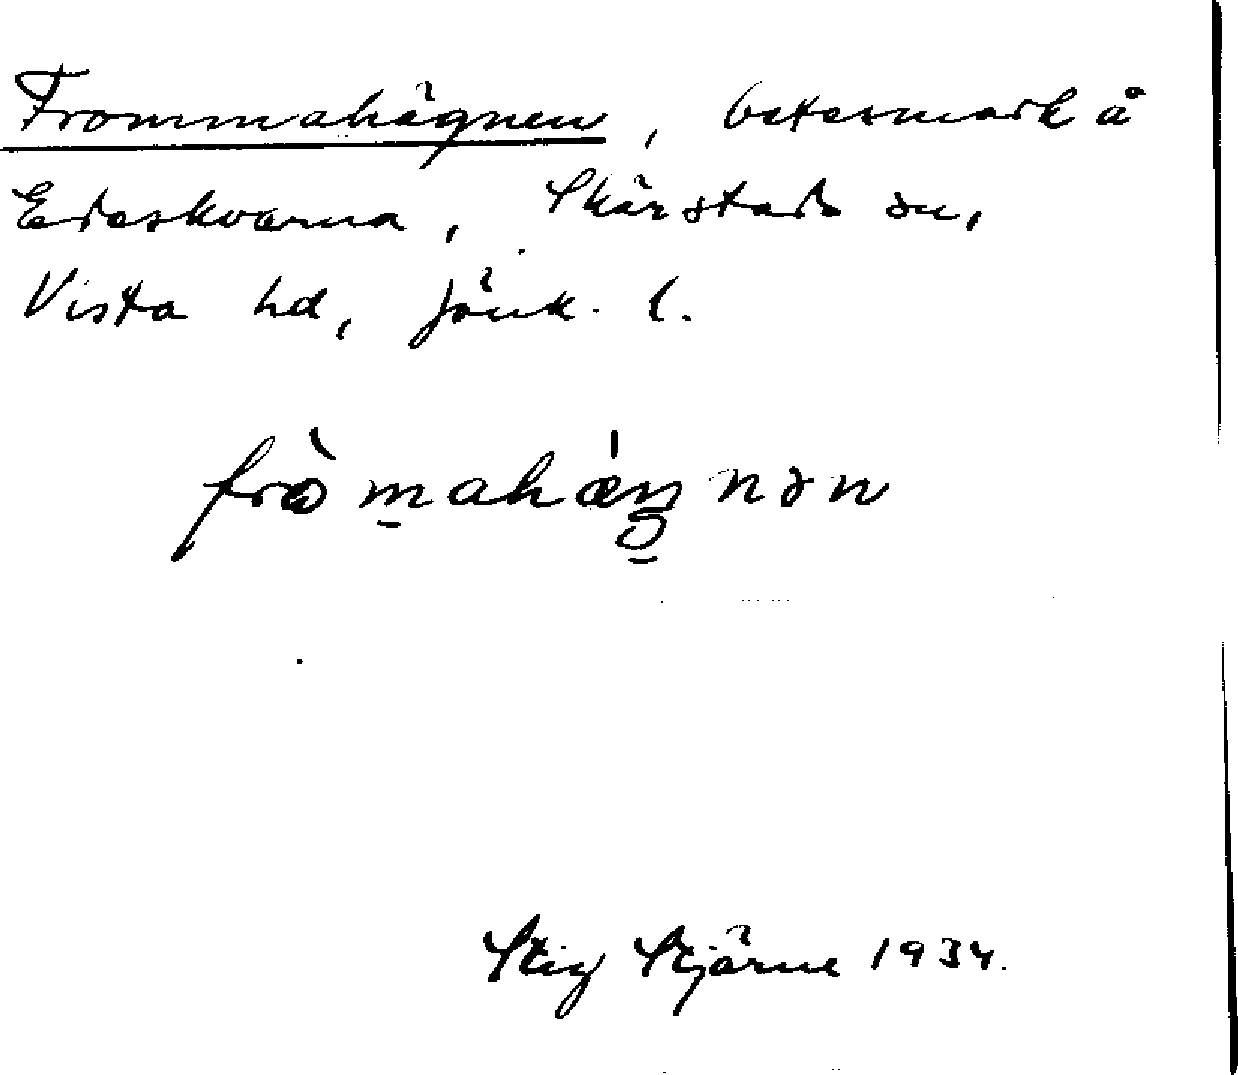 Frommahägnen, betesmark å
Edeskvarna, Skärstads sn,
Vista hd, Jönk. l.
frò m̲ahæ̍ŋnən
Stig Stjärne 1934.